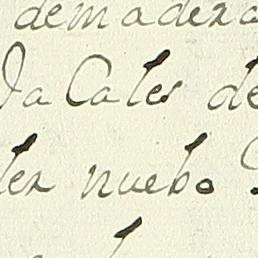 demadera
Ja Cates de
tex nuebo